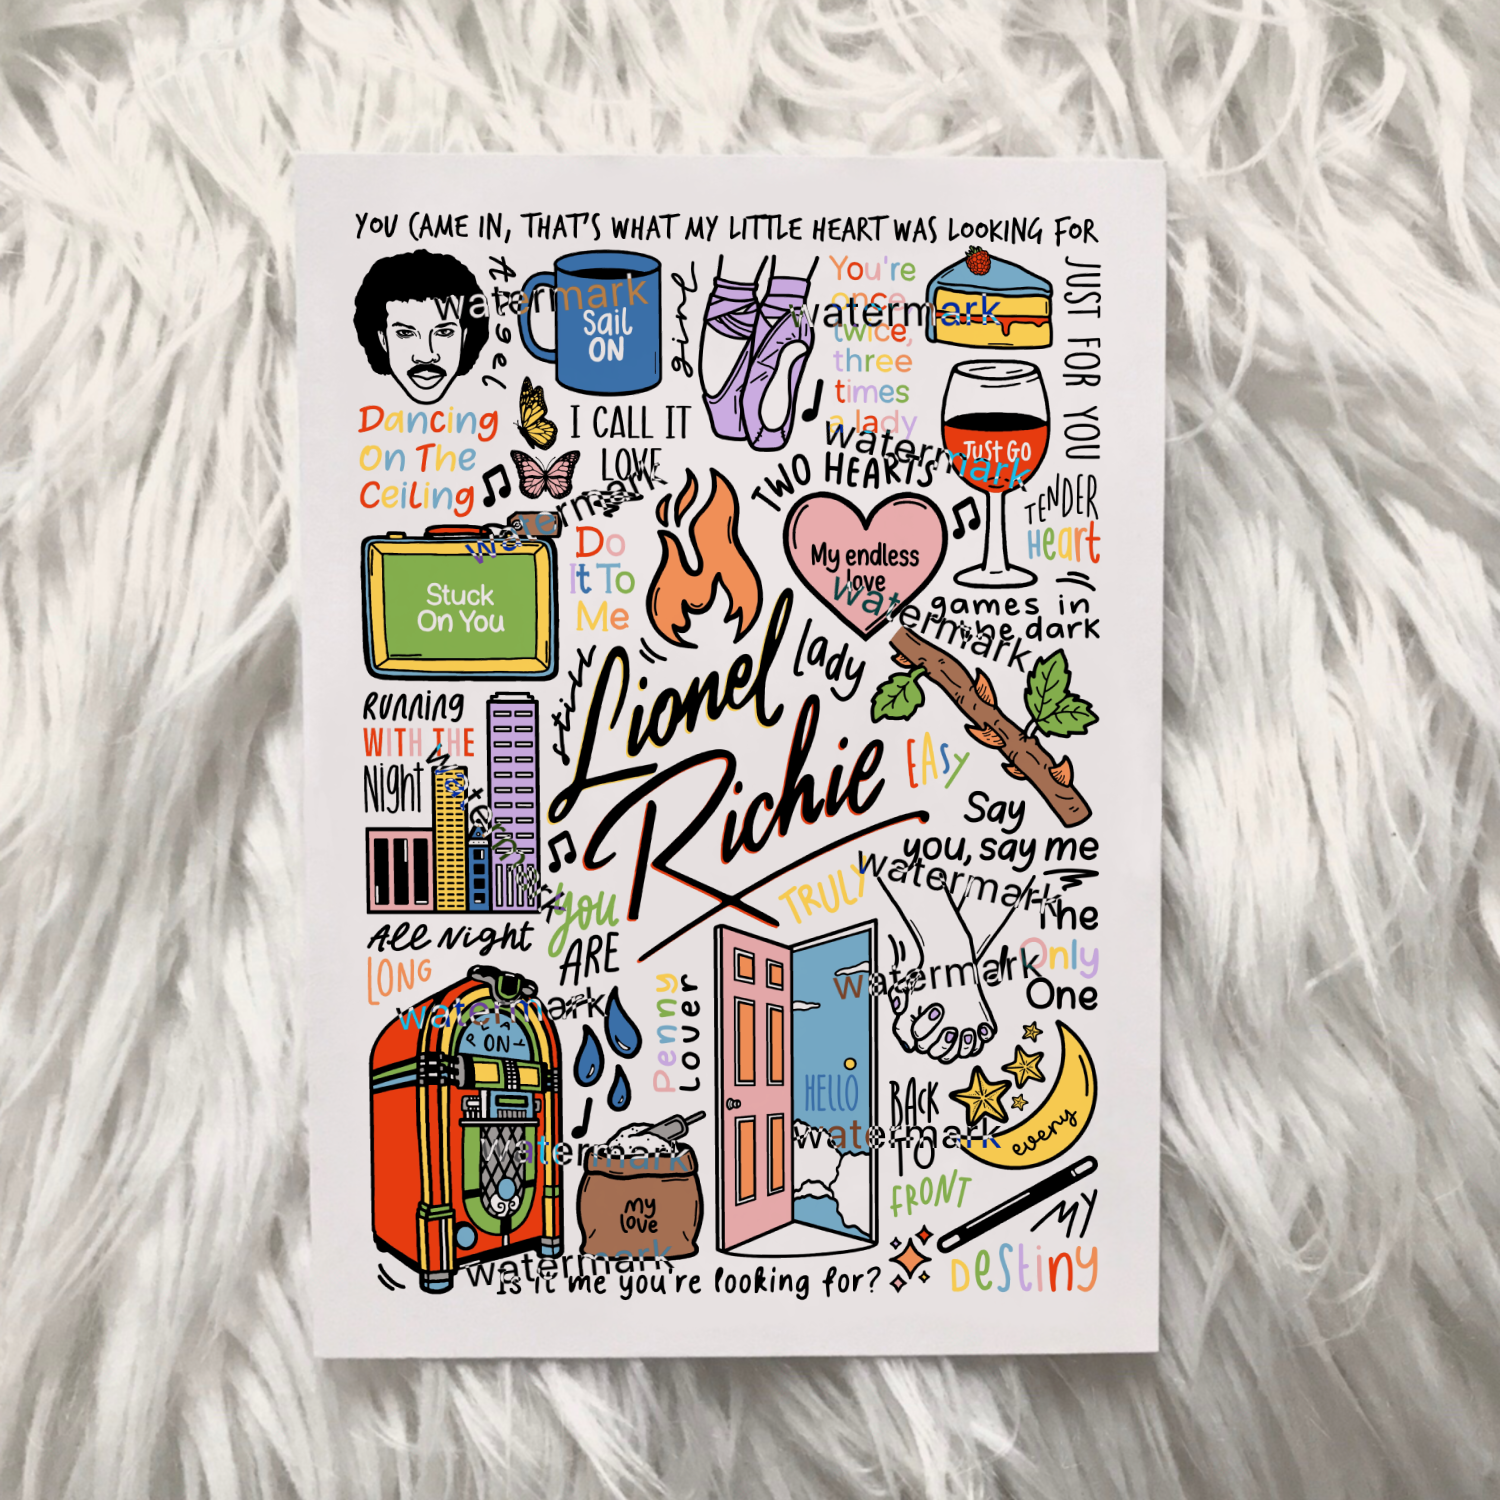 YOU CAME IN, THAT'S WHAT MY LITTLE HEART WAS LOOKING FOR
JUST FOR YOU
Angel
watermark
Sail
ON
girl
You're
once
twice,
three
times
a lady
watermark
Dancing
On The
Ceiling
I CALL IT
LOVE
watermark
JUST GO
TWO HEARTS
TENDER
Heart
watermark
Stuck
On You
Do
It To
Me
My endless
love
watermark
games in
the dark
still
Lionel
Richie
lady
Running
WITH THE
Night
watermark
EASY
Say
you, say me
TRULY
watermark
The
Only
One
watermark
You
ARE
All Night
LONG
watermark
ON
Penny
Lover
HELLO
watermark
BACK
TO
FRONT
every
watermark
my
love
watermark
MY
Destiny
Is it me you're looking for?